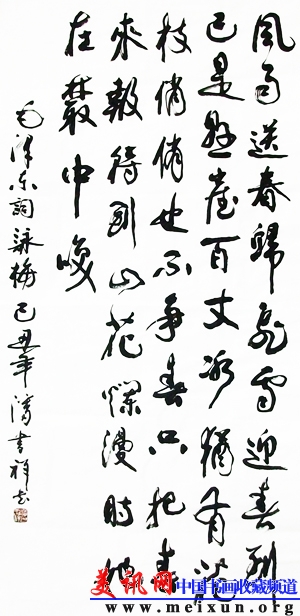 風雨送春歸飛雪迎春到
已是懸崖百丈冰猶有花
枝俏俏也不争春只把春
來報待到山花爛漫時她
在叢中咲
毛泽东詞詠梅己丑年潘書祥书
美讯网中国书画收藏频道
www.meixun.org